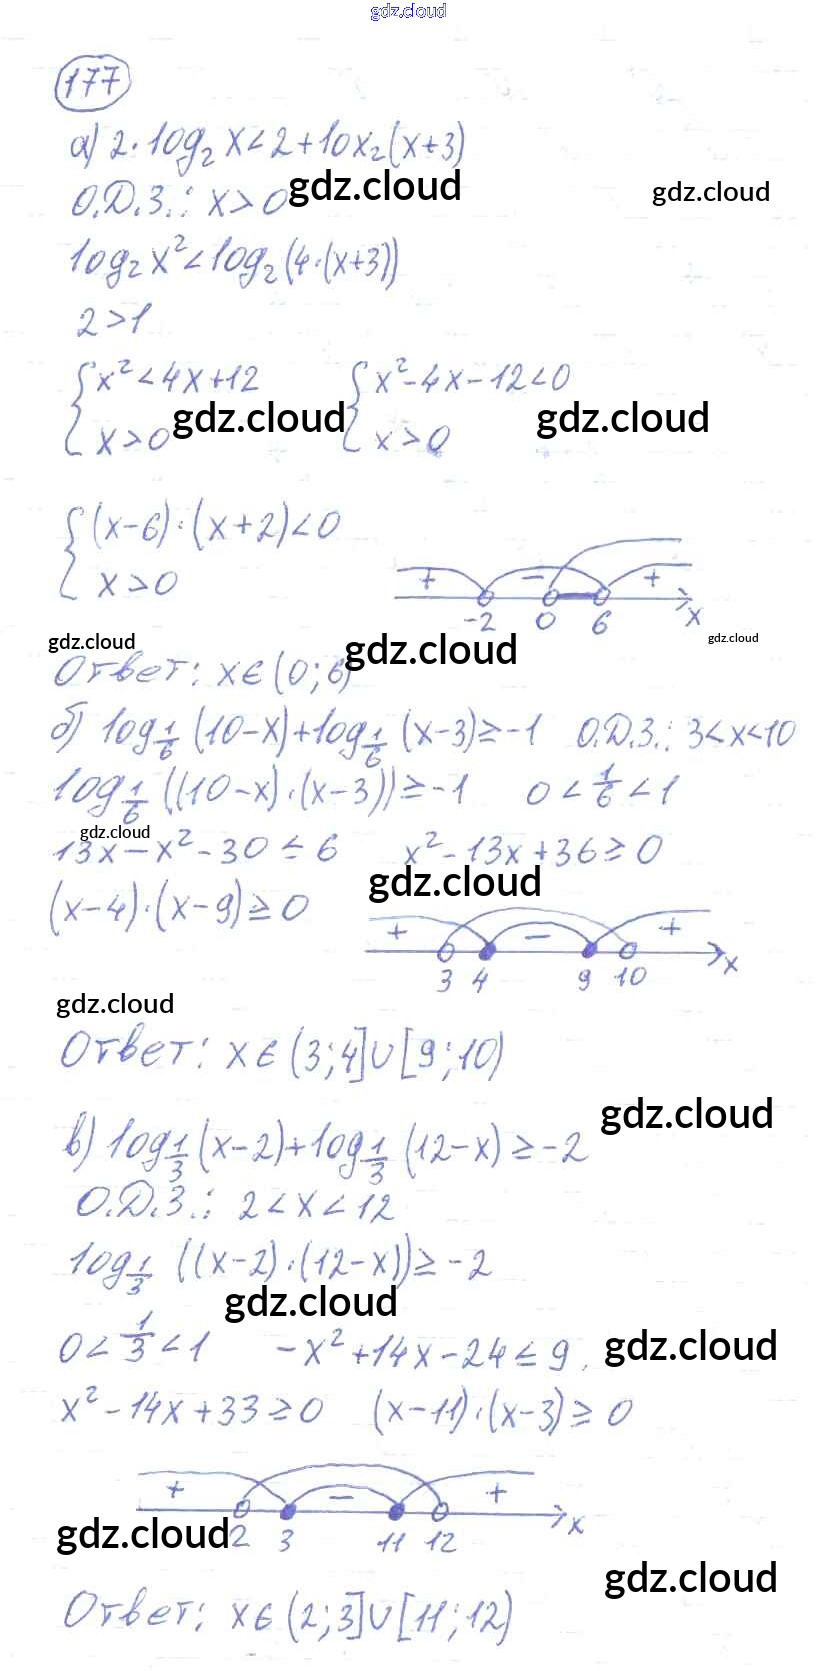 gdz.cloud
177
а) 2·log₂ x < 2 + 10x₂(x+3)
О.Д.З.: x > 0 gdz.cloud gdz.cloud
log₂ x² < log₂ (4·(x+3))
2 > 1
{ x² < 4x+12 { x² - 4x - 12 < 0
{ x > 0 gdz.cloud { x > 0 gdz.cloud
{ (x-6)·(x+2) < 0
{ x > 0
+ - +
-2 0 6 x
gdz.cloud gdz.cloud gdz.cloud
Ответ: x ∈ (0; 6)
б) log_{1/6} (10-x) + log_{1/6} (x-3) ≥ -1 О.Д.З.: 3 < x < 10
log_{1/6} ((10-x)·(x-3)) ≥ -1 0 < 1/6 < 1
gdz.cloud
13x - x² - 30 ≤ 6 x² - 13x + 36 ≥ 0
gdz.cloud
(x-4)·(x-9) ≥ 0
+ - +
3 4 9 10 x
gdz.cloud
Ответ: x ∈ (3; 4] ∪ [9; 10)
gdz.cloud
в) log_{1/3} (x-2) + log_{1/3} (12-x) ≥ -2
О.Д.З.: 2 < x < 12
log_{1/3} ((x-2)·(12-x)) ≥ -2
gdz.cloud
0 < 1/3 < 1 -x² + 14x - 24 ≤ 9, gdz.cloud
x² - 14x + 33 ≥ 0 (x-11)·(x-3) ≥ 0
+ - +
gdz.cloud 2 3 11 12 x
gdz.cloud
Ответ: x ∈ (2; 3] ∪ [11; 12)